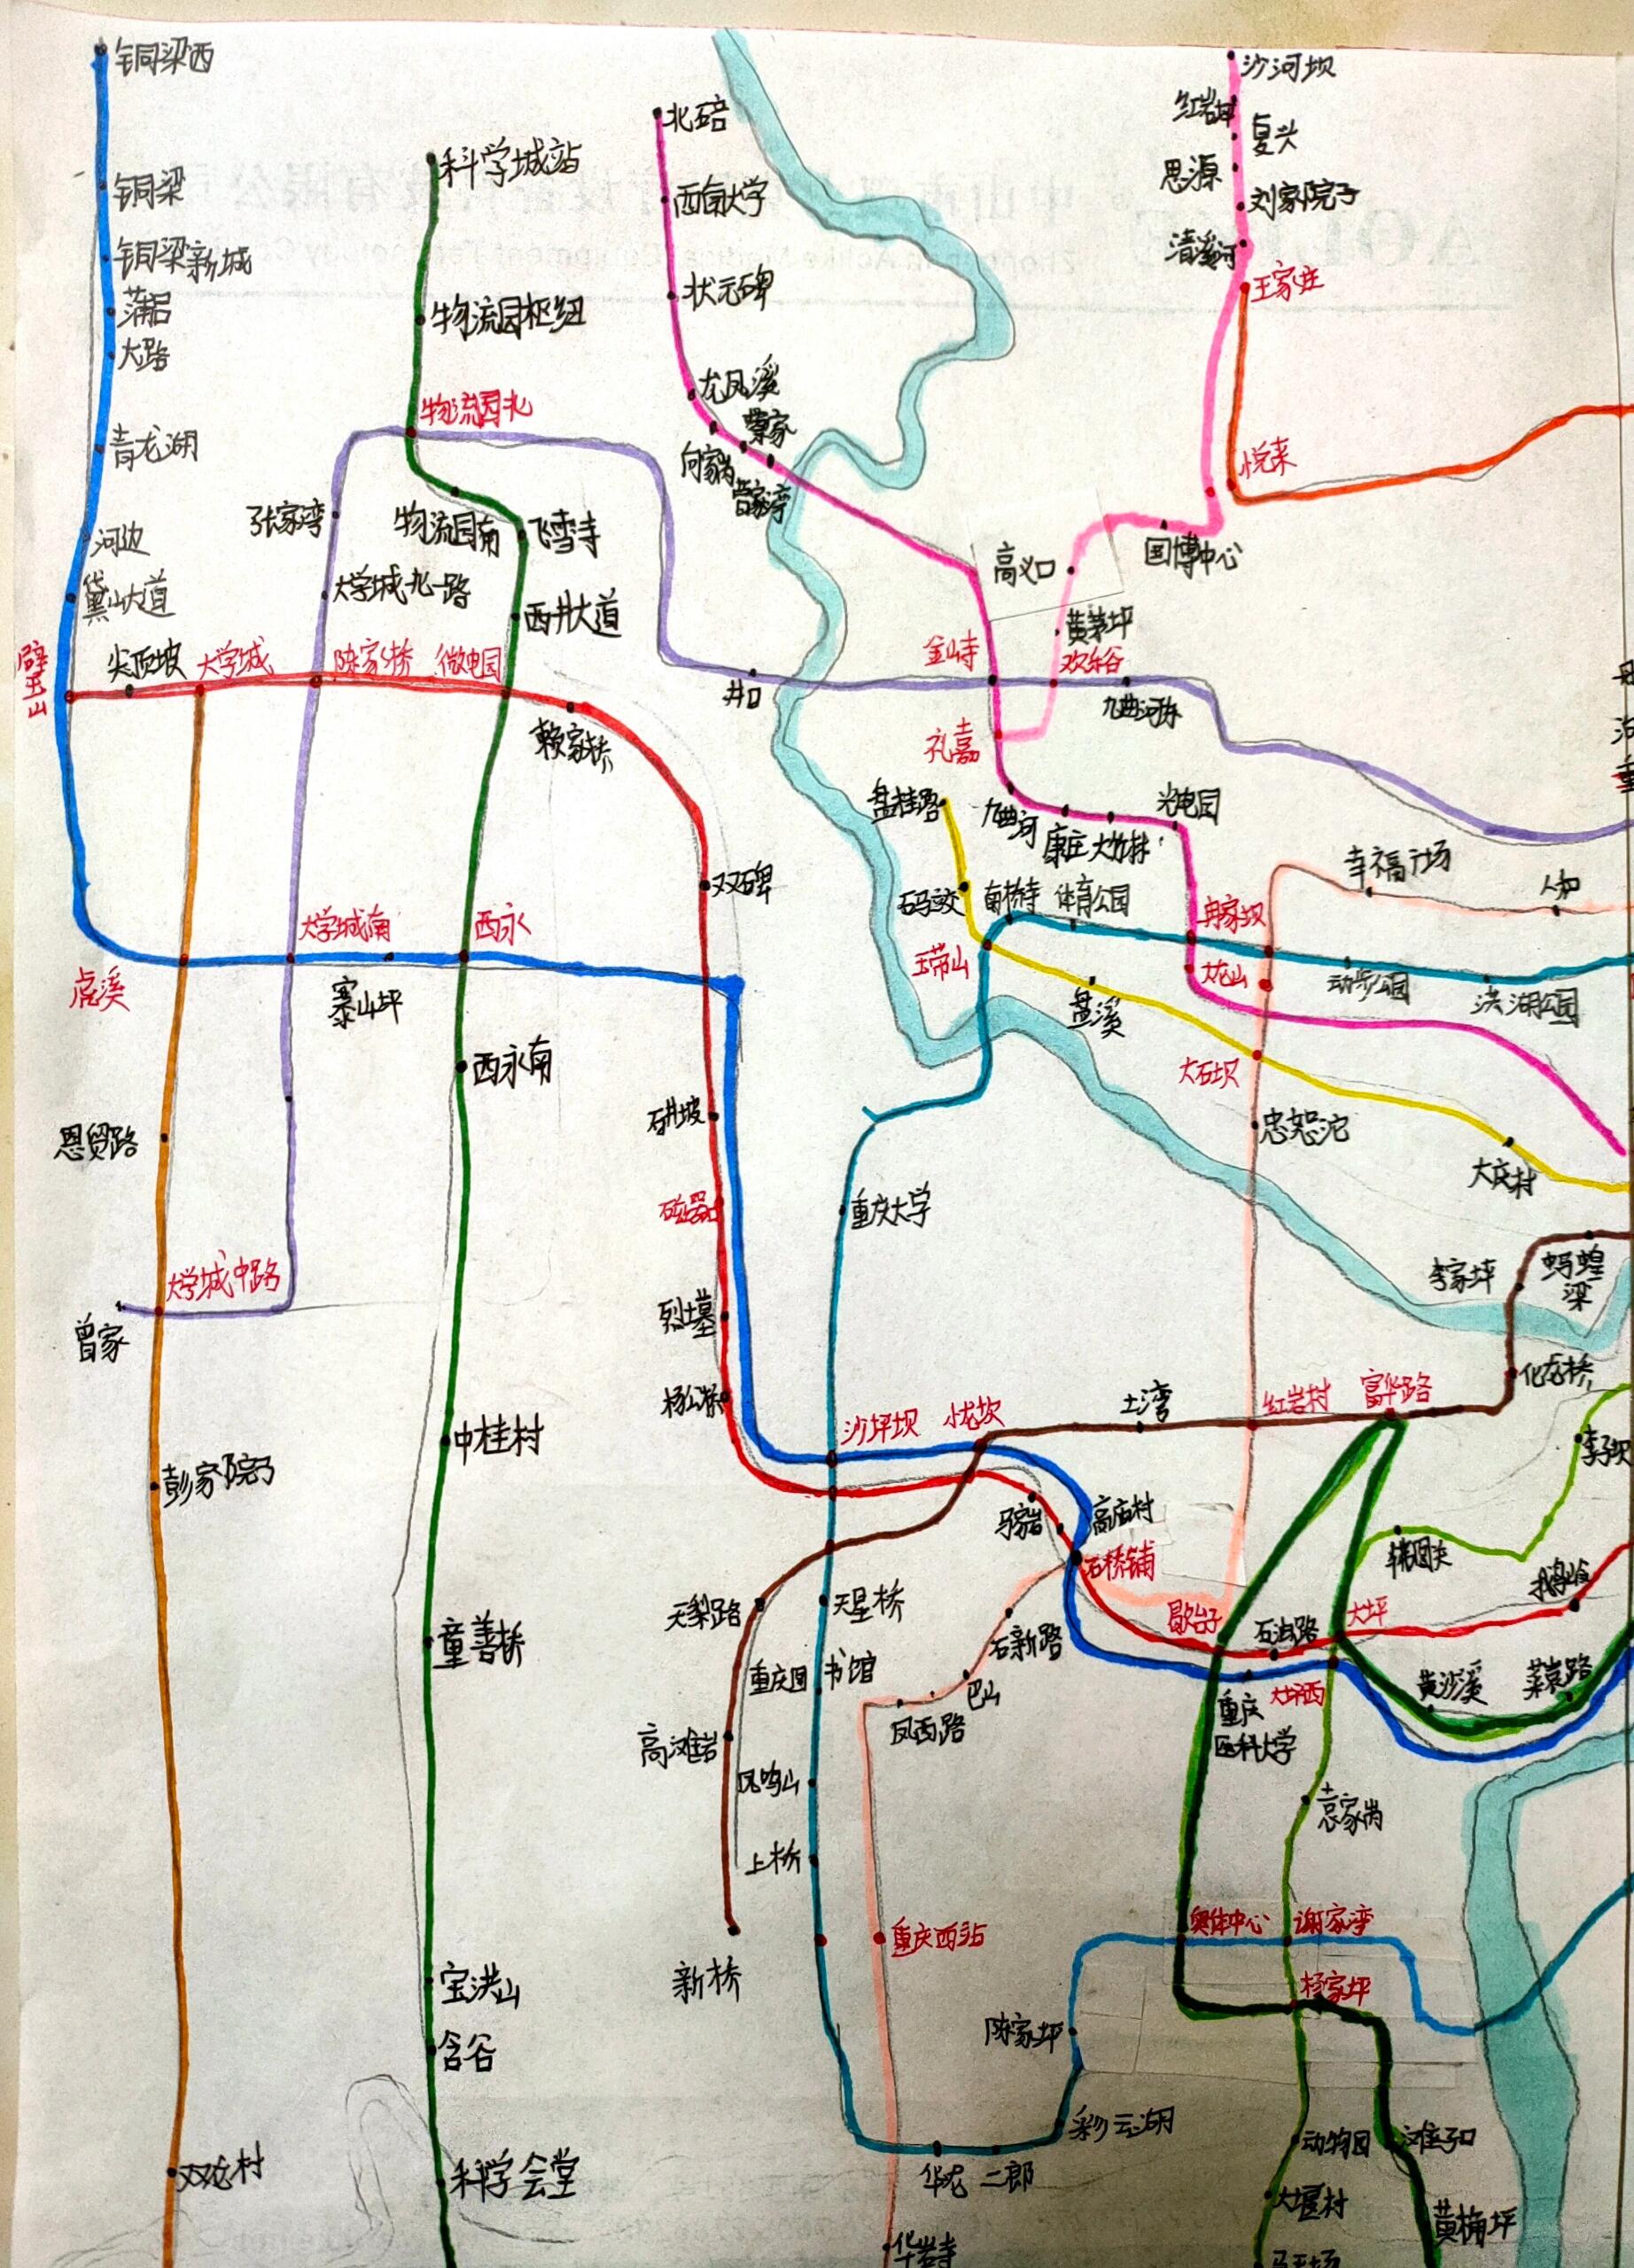 铜梁西
沙河坝
红岩坪
北碚
复兴
科学城站
思源
铜梁
西南大学
刘家院子
清溪河
铜梁新城
王家庄
状元碑
蒲吕
物流园枢纽
大路
龙凤溪
物流园北
蔡家
青龙湖
向家岗
悦来
曹家湾
张家湾
物流园南
飞雪寺
河边
国博中心
高义口
黛山大道
大学城北路
西井大道
黄茅坪
璧山
尖顶坡
大学城
陈家桥
微电园
金山寺
欢乐谷
井口
九曲河东
赖家桥
礼嘉
盘桂路
九曲河
康庄
大竹林
光电园
幸福广场
双碑
石马河
南桥寺
体育公园
人和
大学城南
西永
冉家坝
玉带山
大龙山
虎溪
寨山坪
盘溪
动步公园
洪湖公园
西永南
大石坝
石井坡
忠恕沱
恩贸路
大庆村
磁器口
重庆大学
大学城中路
李家坪
蚂蝗梁
曾家
烈士墓
化龙桥
杨公桥
沙坪坝
小龙坎
土湾
红岩村
富华路
中桂村
李子坝
彭家院子
马家岩
高庙村
石桥铺
天梨路
天星桥
歇台子
石油路
大坪
鹅岭
童善桥
石新路
重庆图书馆
巴山
大坪西
黄沙溪
菜袁路
凤西路
重庆医科大学
高滩岩
凤鸣山
袁家岗
上桥
重庆西站
奥体中心
谢家湾
新桥
宝洪山
杨家坪
陈家坪
含谷
彩云湖
动物园
滩子口
双龙村
科学会堂
华龙
二郎
大堰村
黄桷坪
华岩寺
马王场